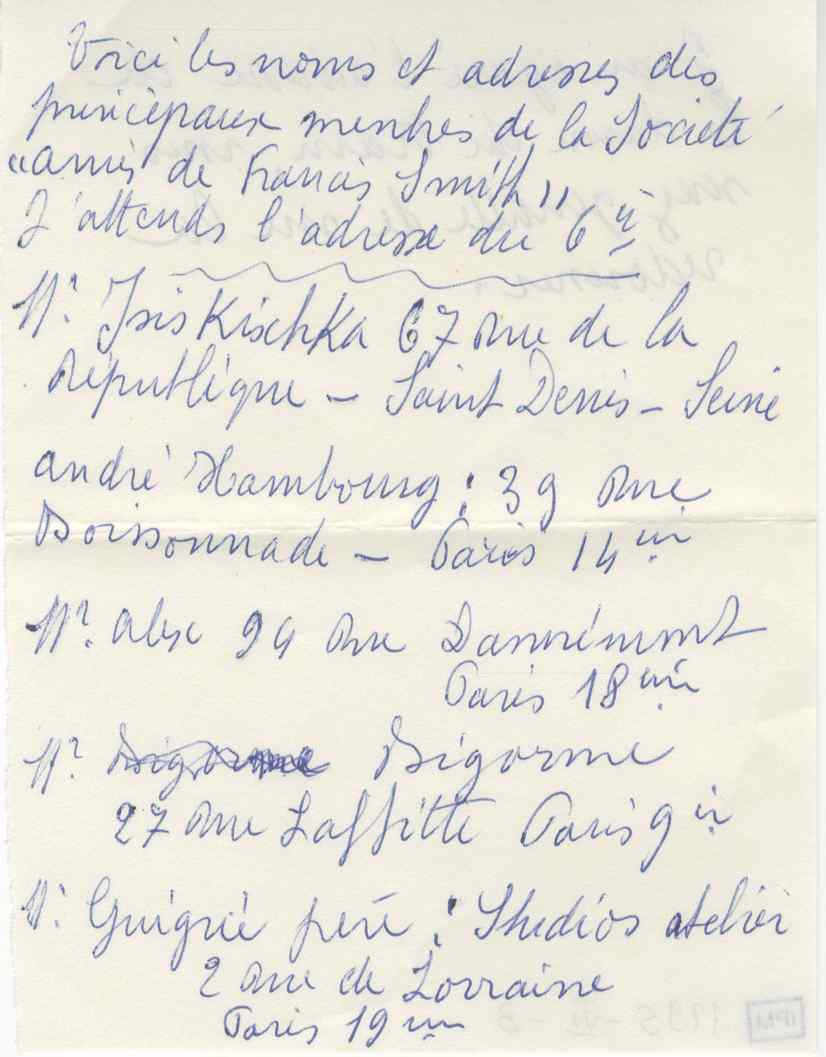 Voici les noms et adresses des
principaux membres de la Société
"amis de Francis Smith"
J'attends l'adresse du 6è
Mr. Isis Kischka 67 rue de la
République – Saint Denis – Seine
andré Hambourg : 39 rue
Boissonnade – Paris 14ème
Mr. alex 94 rue Damrémont
Paris 18ème
Mr. Bigorne Bigorne
27 rue Laffitte Paris 9è
Mr. père : Studios atelier
2 rue de Lorraine
Paris 19ème